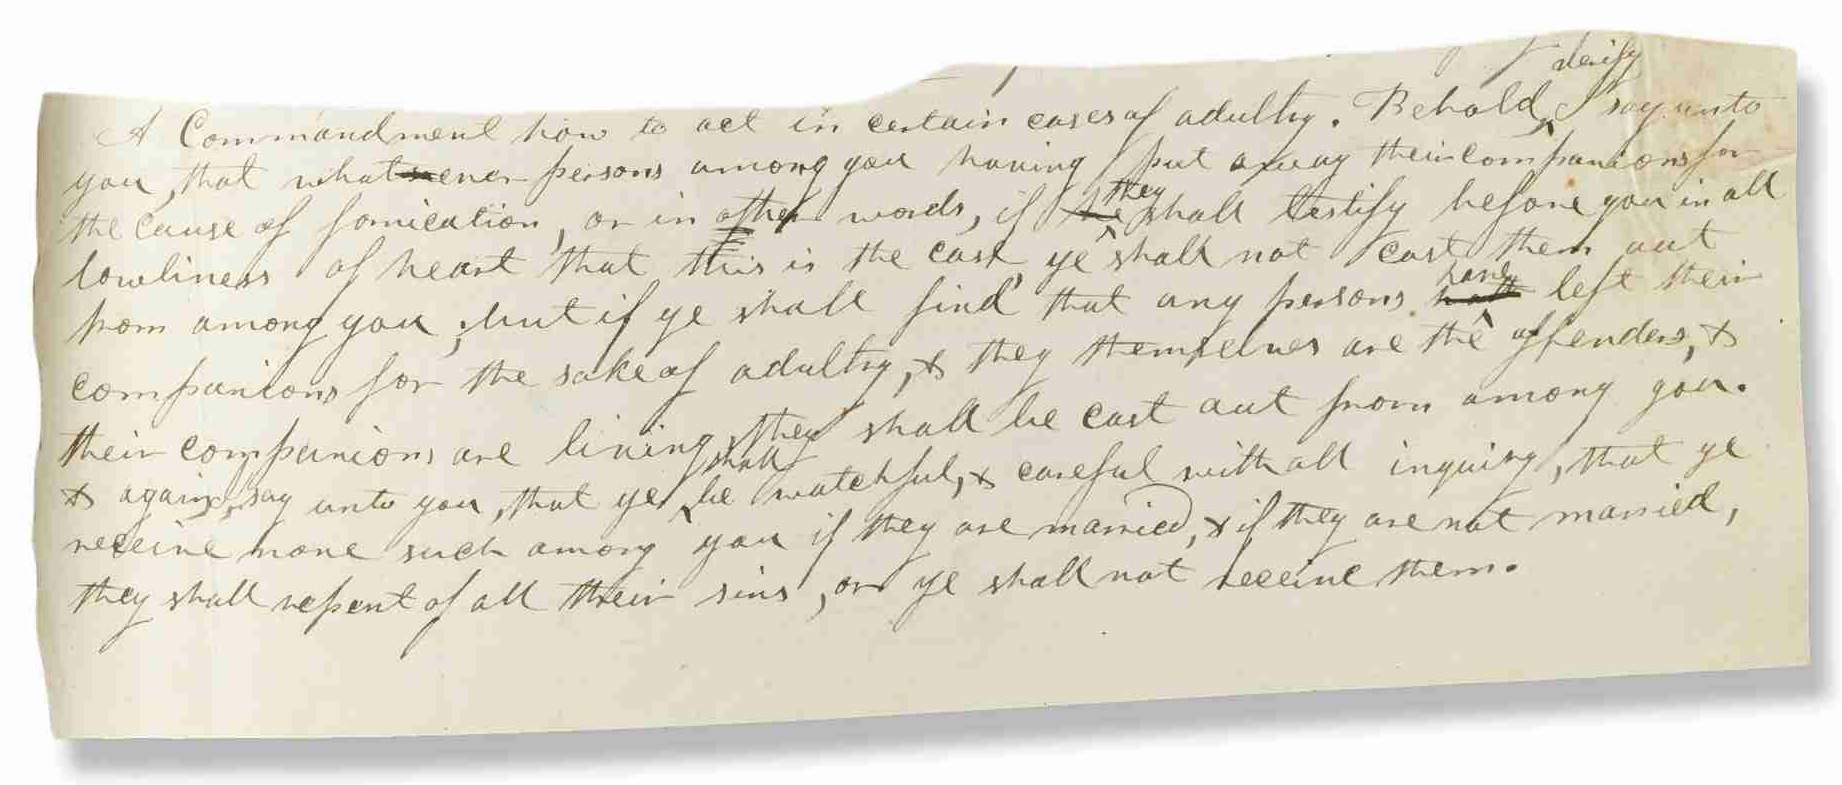 A Commandment how to act in certain cases of adultry. Behold, verily I say unto
you, that whatsoever persons among you having put away their companions for
the cause of fornication, or in other words, if he they shall testify before you in all
lowliness of heart that this is the case, ye shall not cast them out
from among you; but if ye shall find that any persons hath have left their
companions for the sake of adultry, & they themselves are the offenders, &
their companions are living, they shall be cast out from among you.
& again, I say unto you, that ye shall be watchful, & careful with all inquiry, that ye
receive none such among you if they are married, & if they are not married,
they shall repent of all their sins, or ye shall not receive them.